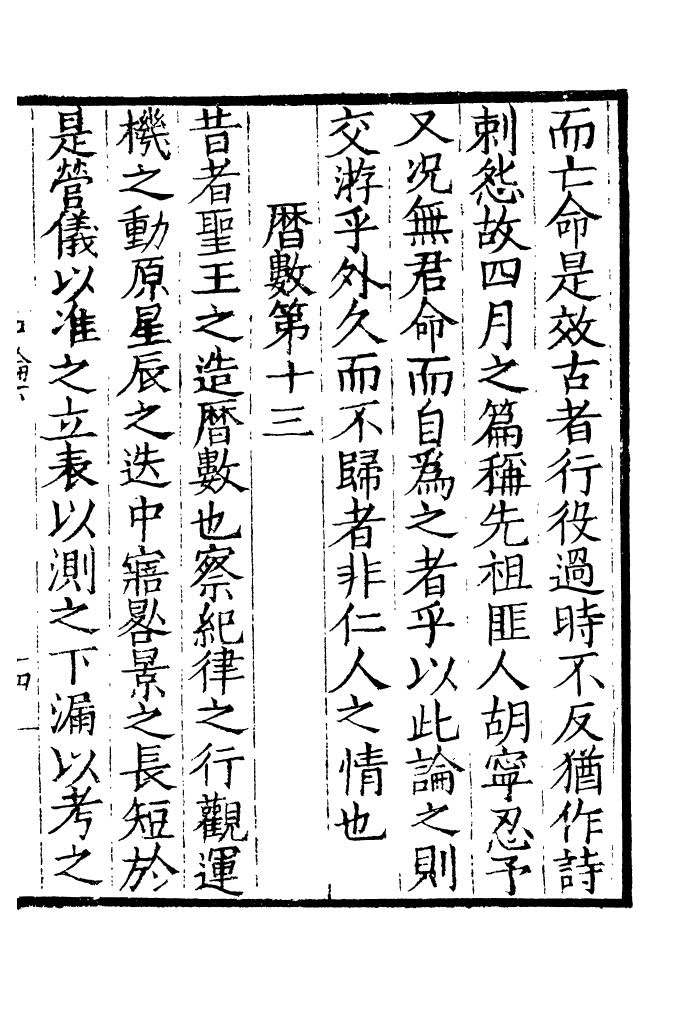 而亡命是效古者行役過時不反猶作詩
刺怨故四月之篇稱先祖匪人胡寧忍予
又况無君命而自爲之者乎以此論之則
交游乎外久而不歸者非仁人之情也
曆數第十三
昔者聖王之造曆數也察紀律之行觀運
機之動原星辰之迭中寤晷景之長短於
是營儀以准之立表以測之下漏以考之